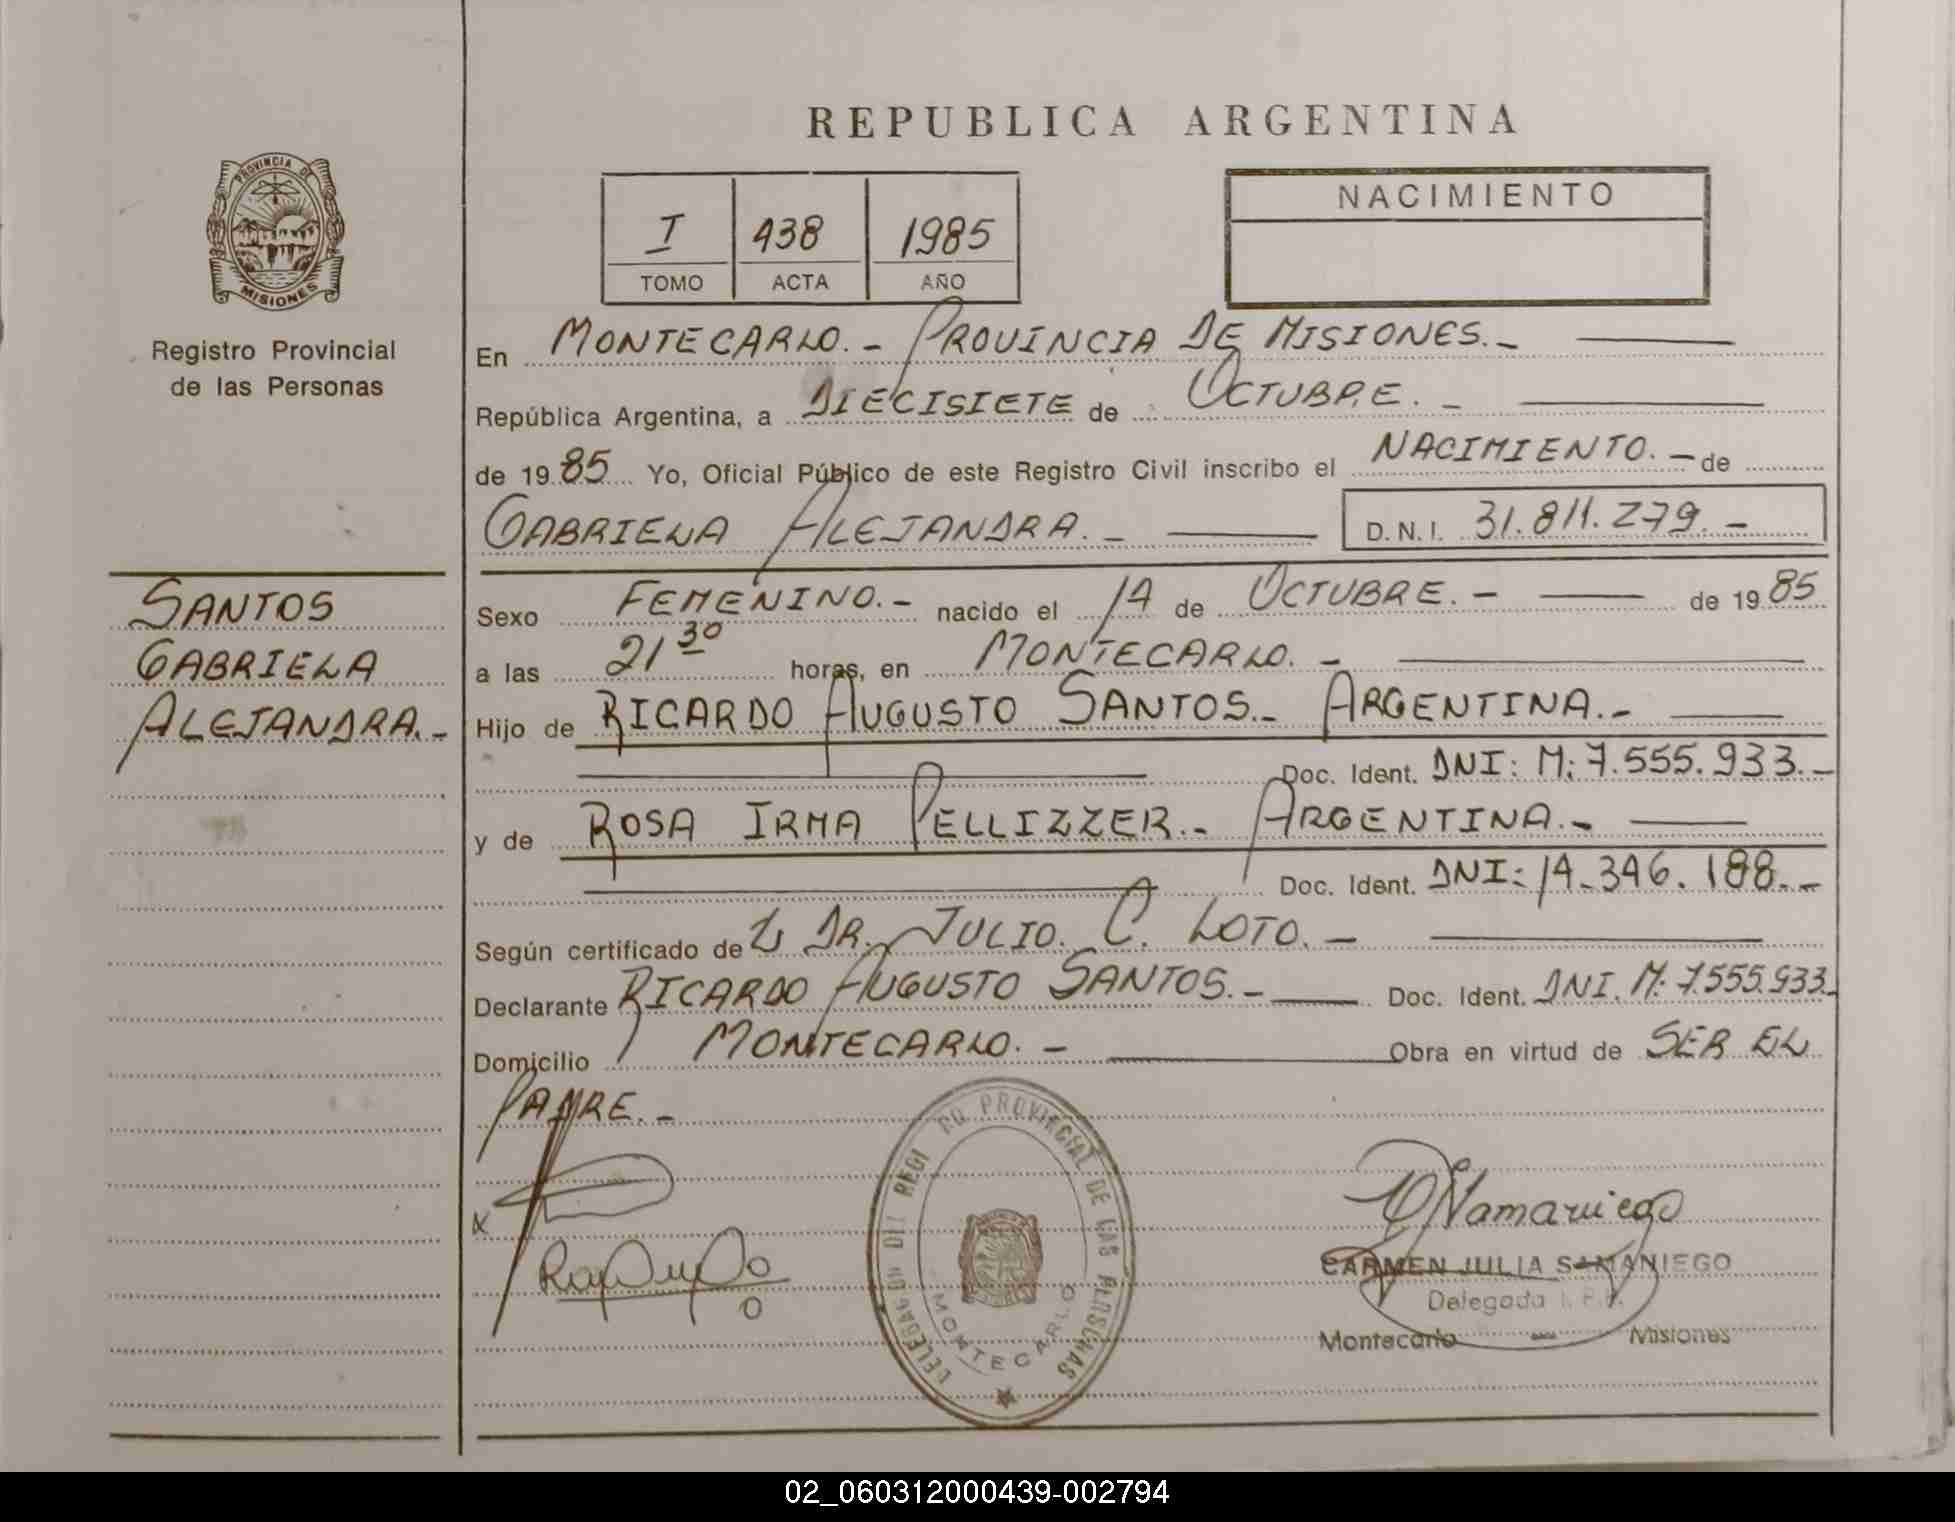 REPUBLICA ARGENTINA
PROVINCIA DE
MISIONES
Registro Provincial
de las Personas
I 438 1985
TOMO ACTA AÑO
NACIMIENTO
En MONTECARLO.- PROVINCIA DE MISIONES.-
República Argentina, a DIECISIETE de OCTUBRE.-
de 1985 Yo, Oficial Público de este Registro Civil inscribo el NACIMIENTO.- de
GABRIELA ALEJANDRA.- D.N.I. 31.811.279.-
SANTOS
GABRIELA
ALEJANDRA.-
Sexo FEMENINO.- nacido el 14 de OCTUBRE.- de 1985
a las 21 30 horas, en MONTECARLO.-
Hijo de RICARDO AUGUSTO SANTOS.- ARGENTINA.-
Doc. Ident. DNI: M: 7.555.933.-
y de ROSA IRMA PELLIZZER.- ARGENTINA.-
Doc. Ident. DNI: 14.346.188.-
Según certificado de DR. JULIO. C. LOTO.-
Declarante RICARDO AUGUSTO SANTOS.- Doc. Ident. DNI. M: 7.555.933.
Domicilio MONTECARLO.- Obra en virtud de SER EL
PADRE.-
PROVINCIAL DE LAS PERSONAS
MONTECARLO
CARMEN JULIA SAMANIEGO
Delegada
Montecarlo Misiones
02_060312000439-002794